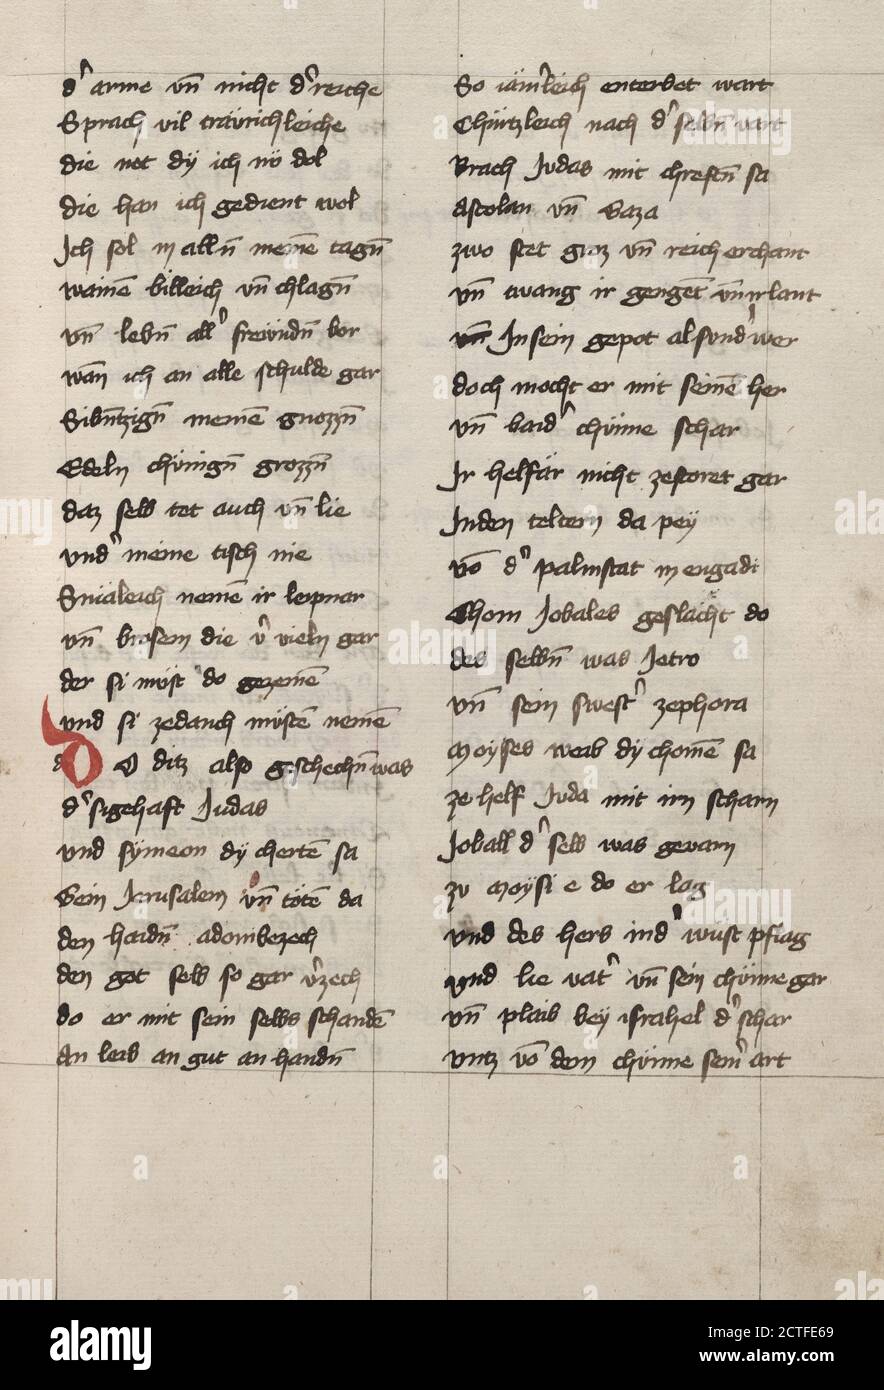 d' arme vn̄ nicht d' reiche
Sprach vil träurichleiche
die not dÿ ich nü dol
die han ich gedient wol
Ich sol in alln̄ meinē tagn̄
wainen billeich vn̄ chlagn̄
vn̄ lebn̄ all' freündn̄ vor
wan̄ ich an alle schulde gar
Sibn̄tzign̄ meinē gnozzn̄
Edeln chünign̄ grozzn̄
datz selb tet auch vn̄ lie
vnd' meine tisch nie
nemē ir leipnar
vn̄ brosem die v' vieln gar
der si müst do gezemē
vnd si zedanch müstē nemē
O ditz also geschechn̄ was
d' sigehaft Judas
vnd sÿmeon dÿ chertē sa
Gein Jerusalem vn̄ tötē da
den haidn̄ adonibezech
den got selb so gar v'zech
do er mit sein selbs schandē
An leib an gut an handn̄
So iäm'leich enterbet wart
Chürtzleich nach d' selbn̄ vart
Brach Judas mit chreftn̄ sa
Ascolan vn̄ Gaza
zwo stet groz vn̄ reich erchant
vn̄ twang ir gengēt vn̄ ir lant
vn̄ In sein gepot al sund' wer
doch mocht er mit seinē her
vn̄ baid' chünne schar
Ir helfär nicht zestöret gar
In den teltern da peÿ
vō d' palmstat in engadi
Chom Jobales geslächt do
des selbn̄ was Jetro
vn̄ sein swest' zephora
Moÿses weib dÿ chomē sa
ze helf Juda mit irn scharn
Joball d' selb was gevarn
zu Moÿsi e do er lag
vnd des hers in d' wüst pflag
vnd lie vat' vn̄ sein chünne gar
vn̄ plaib beÿ israhel d' schar
vntz vō dem chünne sein' art
alamy
Image ID: 2CTFE69
www.alamy.com